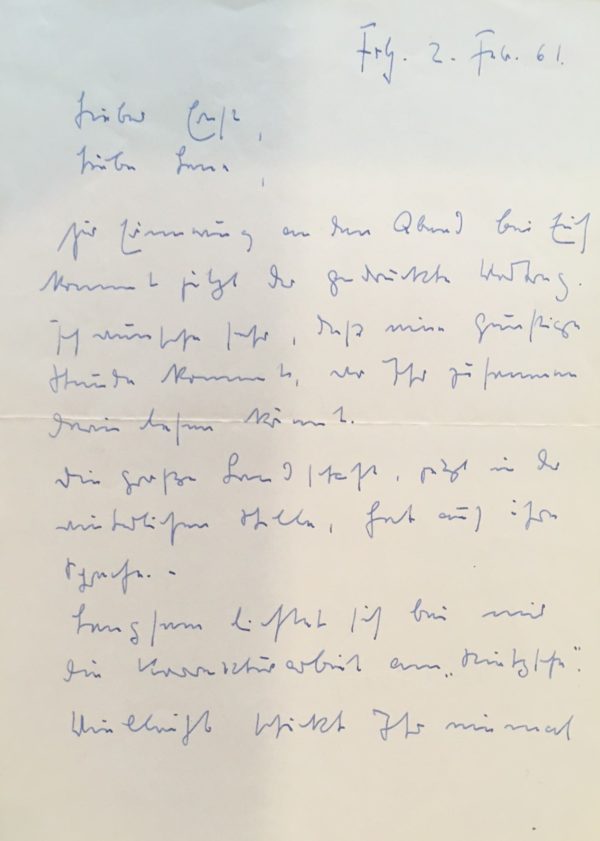 Frbg. 2. Feb. 61.
Lieber Ernst,
liebe Lene,
zur Erinnerung an den Abend bei Euch
kommt jetzt der gedruckte Vortrag.
Ich wünsche sehr, daß eine günstige
Stunde kommt, wo Ihr zusammen
darin lesen könnt.
Die große Landschaft, jetzt in der
winterlichen Stille, hat auch ihre
Sprache. -
Langsam lichtet sich bei mir
die Korrekturarbeit am „Nietzsche".
Vielleicht schickt Ihr einmal